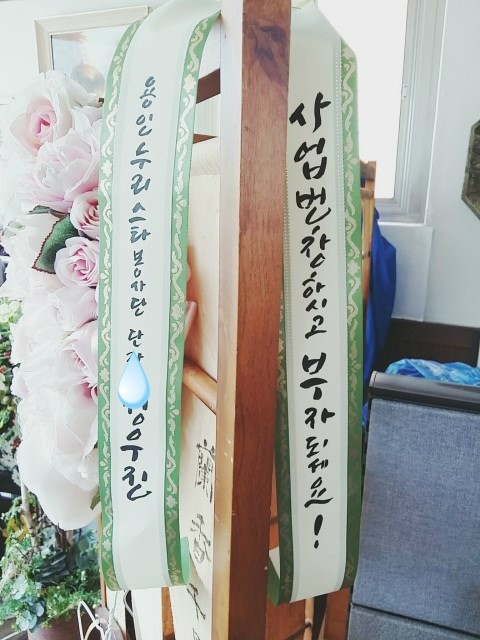 용인누리스타봉사단 단
정우진
사업번창하시고 부자되세요!
蘭香